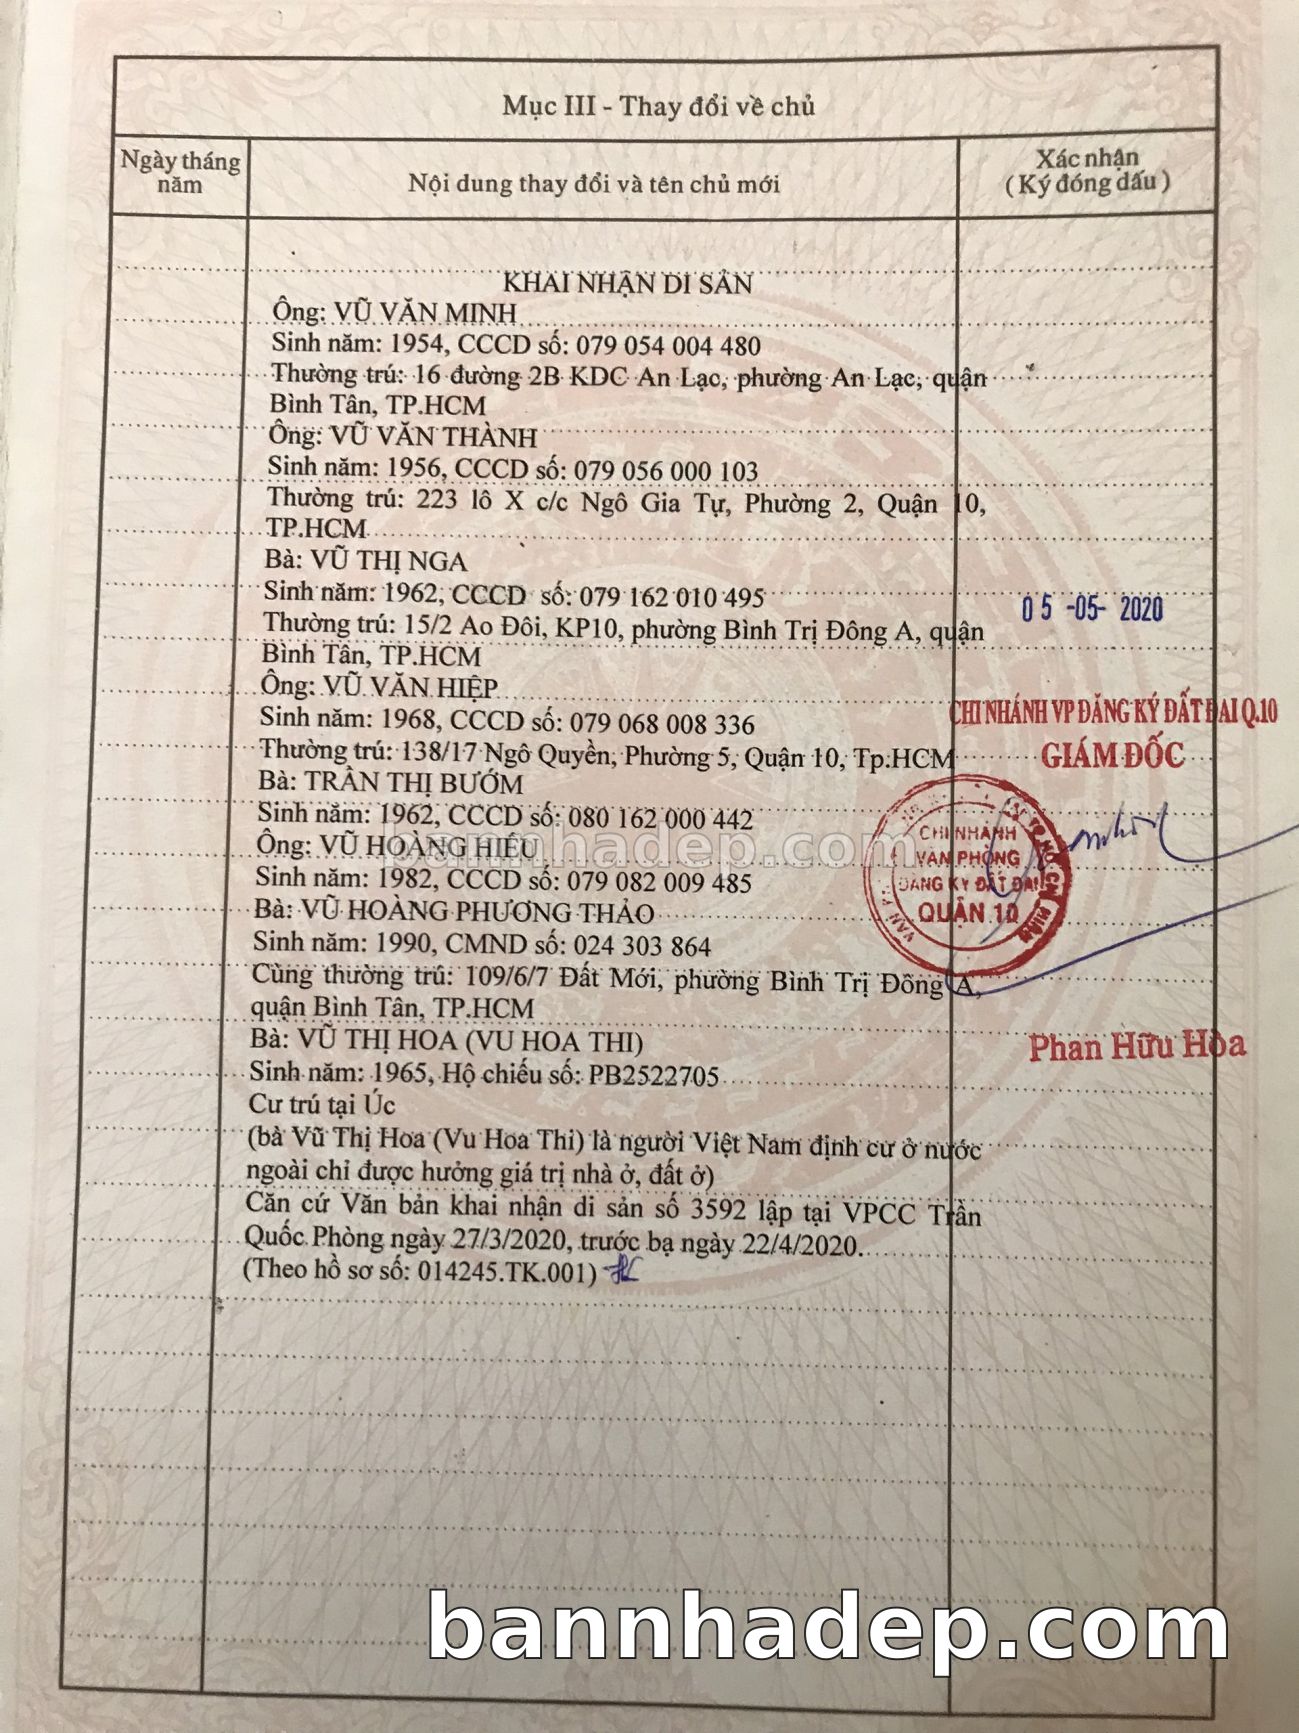 Mục III - Thay đổi về chủ
Ngày tháng năm
Nội dung thay đổi và tên chủ mới
Xác nhận
( Ký đóng dấu )
KHAI NHẬN DI SẢN
Ông: VŨ VĂN MINH
Sinh năm: 1954, CCCD số: 079 054 004 480
Thường trú: 16 đường 2B KDC An Lạc, phường An Lạc, quận
Bình Tân, TP.HCM
Ông: VŨ VĂN THÀNH
Sinh năm: 1956, CCCD số: 079 056 000 103
Thường trú: 223 lô X c/c Ngô Gia Tự, Phường 2, Quận 10,
TP.HCM
Bà: VŨ THỊ NGA
Sinh năm: 1962, CCCD số: 079 162 010 495
Thường trú: 15/2 Ao Đôi, KP10, phường Bình Trị Đông A, quận
Bình Tân, TP.HCM
Ông: VŨ VĂN HIỆP
Sinh năm: 1968, CCCD số: 079 068 008 336
Thường trú: 138/17 Ngô Quyền, Phường 5, Quận 10, Tp.HCM
Bà: TRẦN THỊ BƯỚM
Sinh năm: 1962, CCCD số: 080 162 000 442
Ông: VŨ HOÀNG HIẾU
Sinh năm: 1982, CCCD số: 079 082 009 485
Bà: VŨ HOÀNG PHƯƠNG THẢO
Sinh năm: 1990, CMND số: 024 303 864
Cùng thường trú: 109/6/7 Đất Mới, phường Bình Trị Đông A,
quận Bình Tân, TP.HCM
Bà: VŨ THỊ HOA (VU HOA THI)
Sinh năm: 1965, Hộ chiếu số: PB2522705
Cư trú tại Úc
(bà Vũ Thị Hoa (Vu Hoa Thi) là người Việt Nam định cư ở nước
ngoài chỉ được hưởng giá trị nhà ở, đất ở)
Căn cứ Văn bản khai nhận di sản số 3592 lập tại VPCC Trần
Quốc Phòng ngày 27/3/2020, trước bạ ngày 22/4/2020.
(Theo hồ sơ số: 014245.TK.001)
05 -05- 2020
CHI NHÁNH VP ĐĂNG KÝ ĐẤT ĐAI Q.10
GIÁM ĐỐC
CHI NHÁNH
VĂN PHÒNG
ĐĂNG KÝ ĐẤT ĐAI
QUẬN 10
Phan Hữu Hòa
bannhadep.com
bannhadep.com